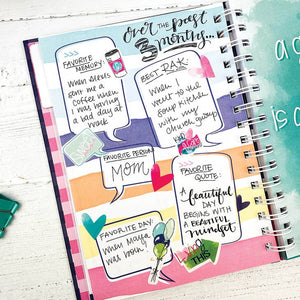 over the past
3 months...
FAVORITE
MEMORY:
When Alexis
sent me a
coffee when
I was having
a bad day at
work
BEST R.A.K.
When I
went to the
Soup Kitchen
with my
church group
FAVORITE PERSON:
MOM
FAVORITE
QUOTE:
A beautiful
DAY
BEGINS WITH
A BEAUTIFUL
mindset
FAVORITE DAY:
When Maya
was born
THIS
a
is a